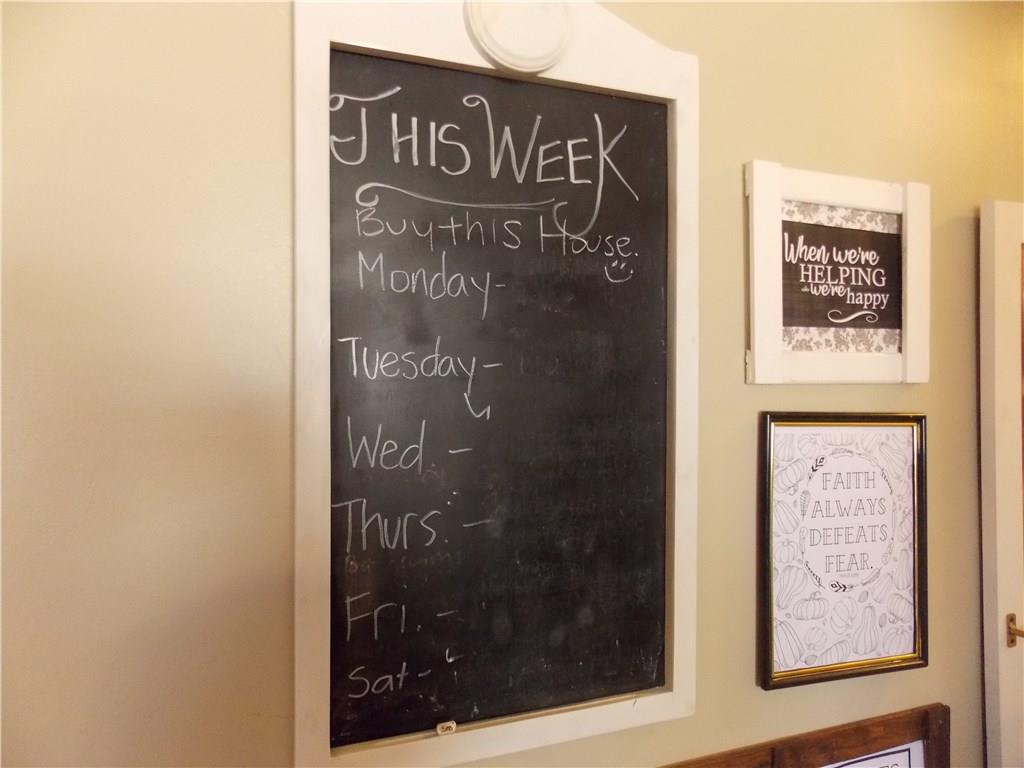 THIS WEEK
Buy this House.
Monday-
Tuesday-
Wed. -
Thurs. -
Fri. -
Sat-
When we're
HELPING
we're happy
FAITH
ALWAYS
DEFEATS
FEAR.